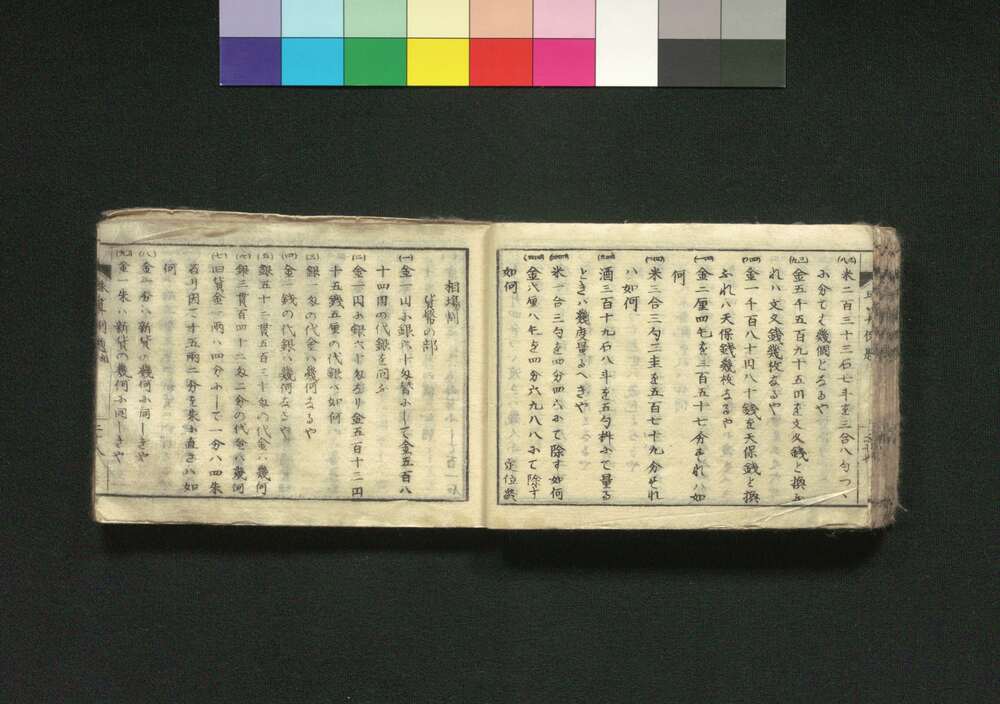 米二百三十三石七斗を三合八勺つゝ
小分てハ幾個となるや
金五千五百九十五円を文久銭と換
れハ文久銭幾枚なるや
金一千百八十円八十銭を天保銭と換
ふれハ天保銭幾枚なるや
金二厘四毛を三百五十七分すれハ如
何
米三合三勺二圭を五百七十九分すれ
ハ如何
酒三百十九石八斗を五勺枡にて量る
ときハ幾度量るへきや
米一合三勺を四分四六にて除す如何
金八厘八毛を四分六九八八にて除す
如何 定位畢
相場割
貨幣の部
(一)
金一円小銀六十匁替にして金五百八
十四円の代銀を問ふ
(二)
金一円に銀六十匁なり金五百十二円
十五銭五厘の代銀ハ如何
(三)
銀一匁の代金ハ幾何なるや
(四)
金一銭の代銀ハ幾何なるや
(五)
銀五十二貫五百三十匁の代金ハ幾何
(六)
銀三貫百四十二匁二分の代金ハ幾何
(七)
旧貨金一両ハ四分にして一分ハ四朱
なり因て十五両二分を朱に直さハ如
何
(八)
金二分ハ新貨の幾何に同しきや
(九)
金一朱ハ新貨の幾何に同しきや